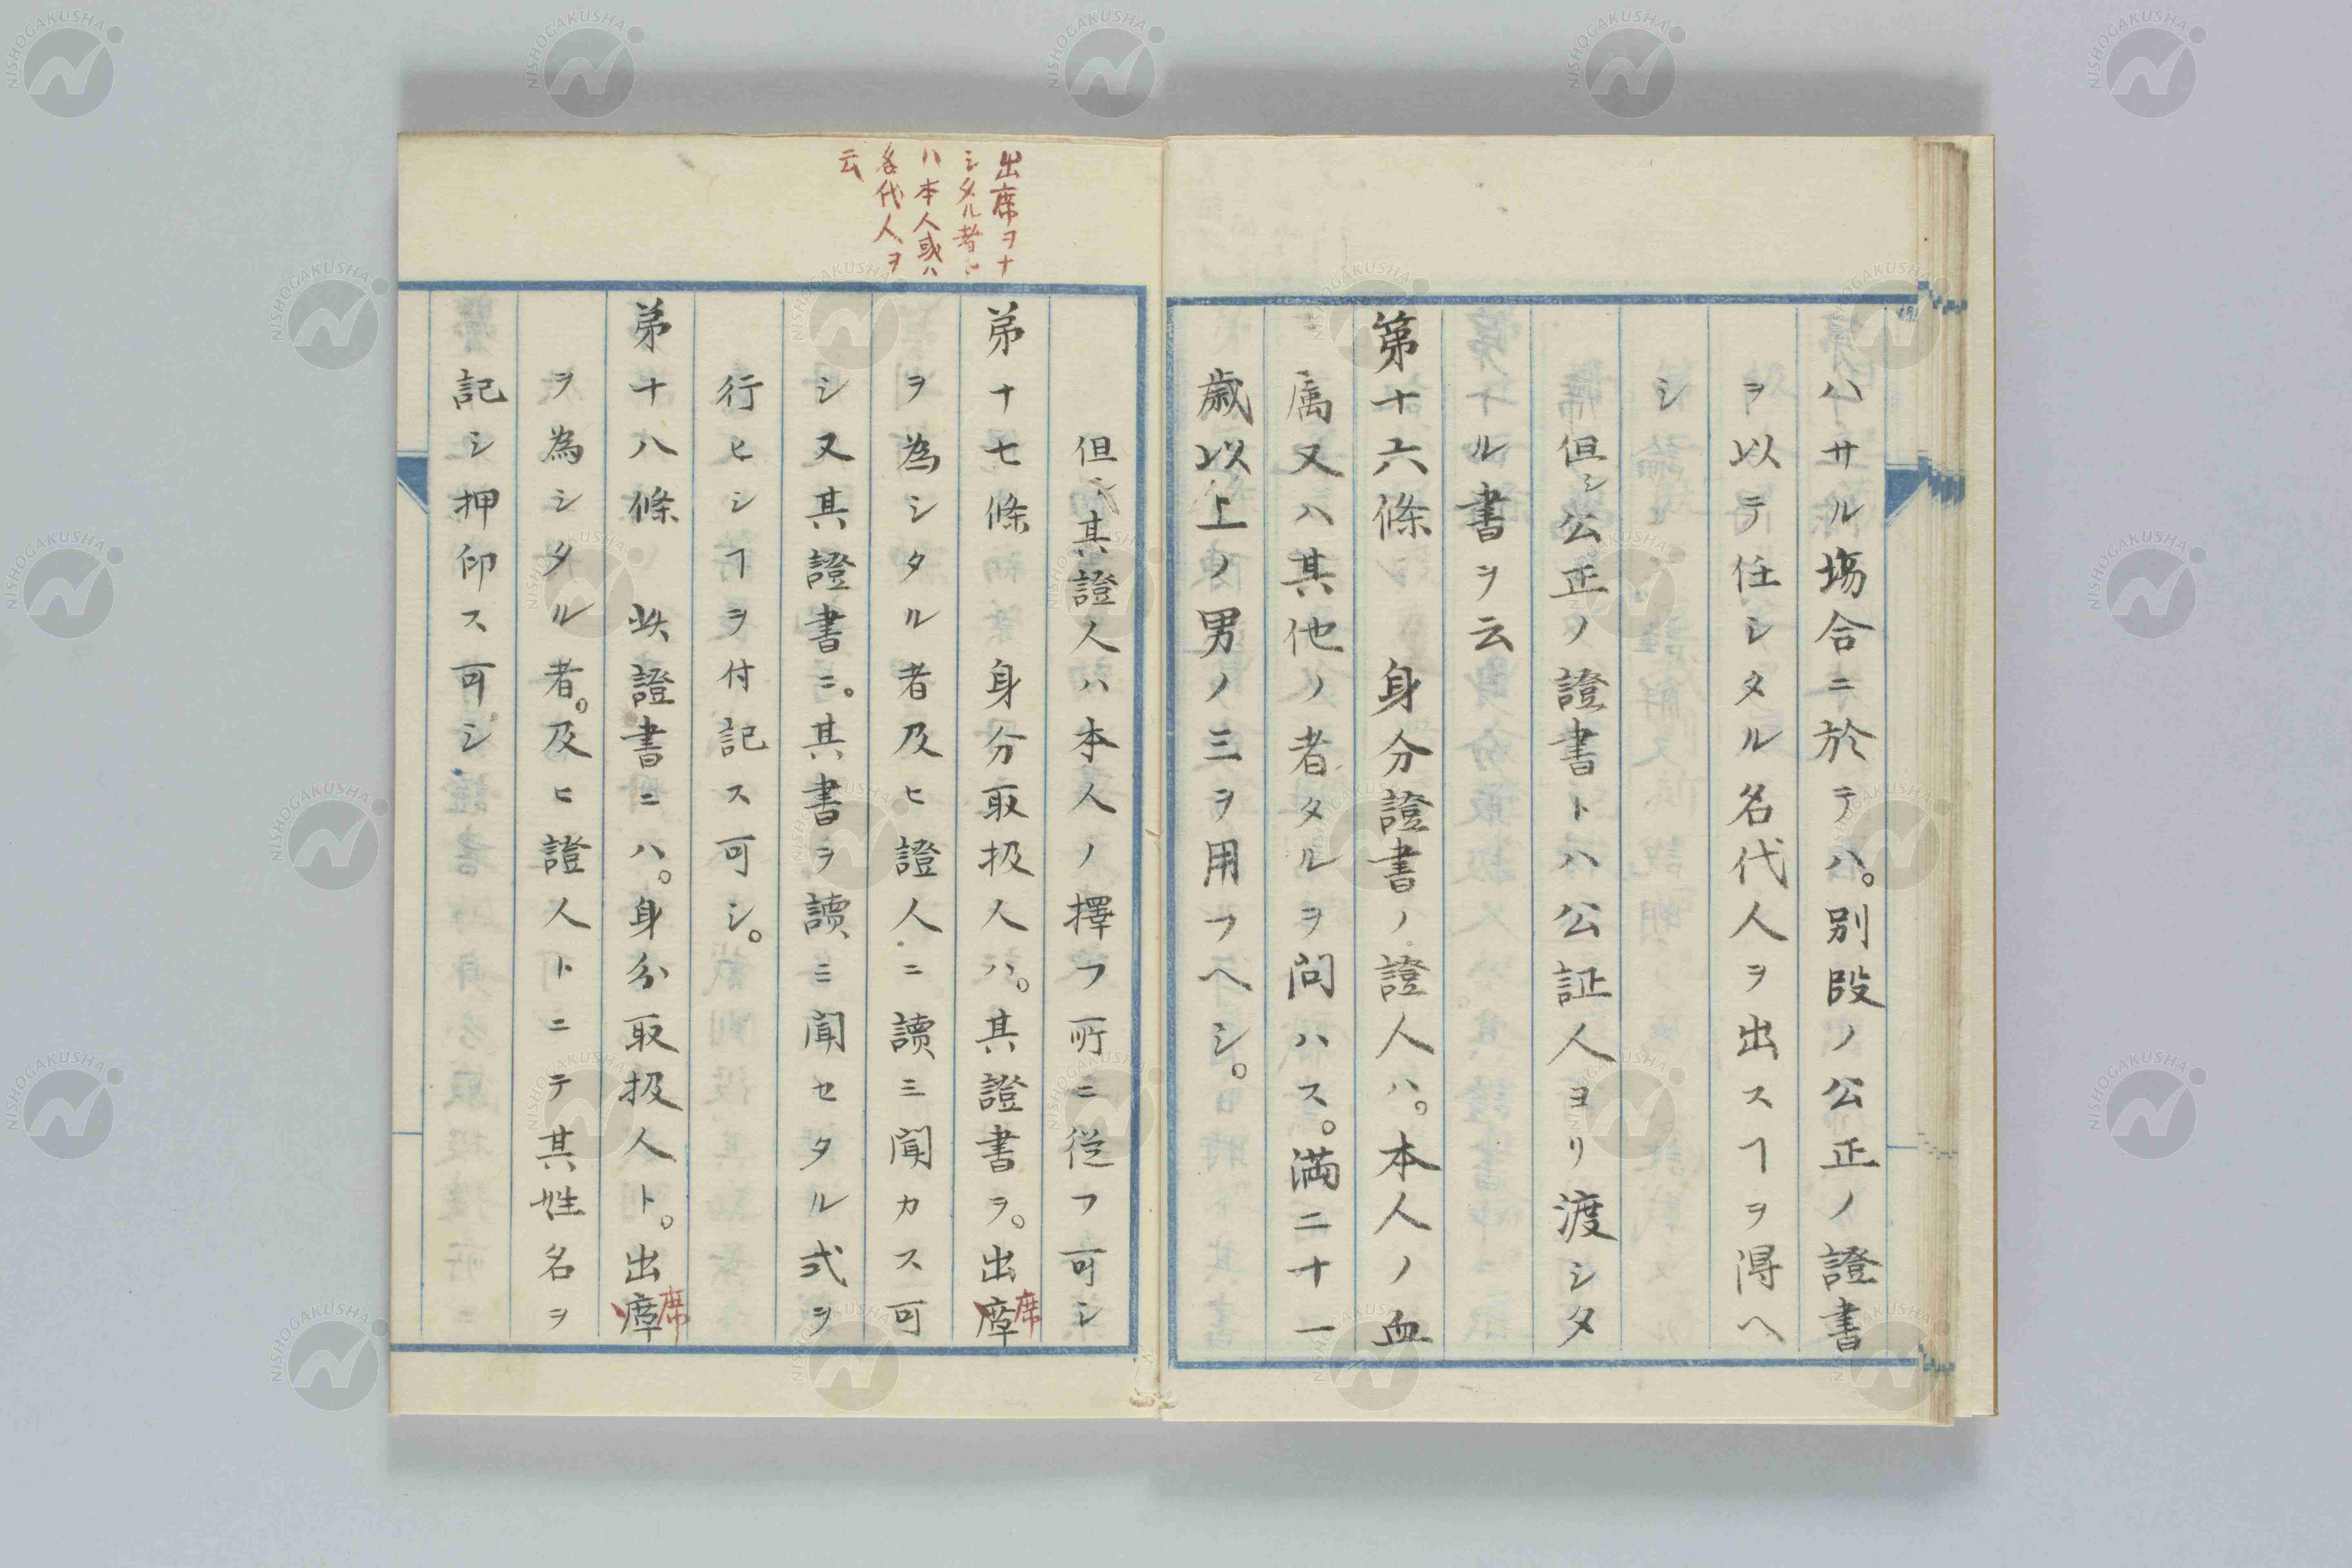 ハサル場合ニ於テハ。別段ノ公正ノ證書
ヲ以テ任シタル名代人ヲ出スヿヲ得ヘ
シ
但シ公正ノ證書トハ公証人ヨリ渡シタ
ル書ヲ云
第十六條 身分證書ノ證人ハ。本人ノ血
属又ハ其他ノ者タルヲ問ハス。満二十一
歳以上ノ男ノミヲ用フヘシ。
出席ヲナ
シタル者ハ
ハ本人或ハ
名代人ヲ
云
但シ其證人ハ本人ノ擇フ所ニ従フ可シ
弟十七條 身分取扱人ハ。其證書ヲ。出席
ヲ為シタル者及ヒ證人ニ讀ミ聞カス可
シ又其證書ニ。其書ヲ讀ミ聞セタル式ヲ
行ヒシヿヲ付記ス可シ。
弟十八條 此證書ニハ。身分取扱人ト。出席
ヲ為シタル者。及ヒ證人トニテ其姓名ヲ
記シ押印ス可シ
NISHOGAKUSHA